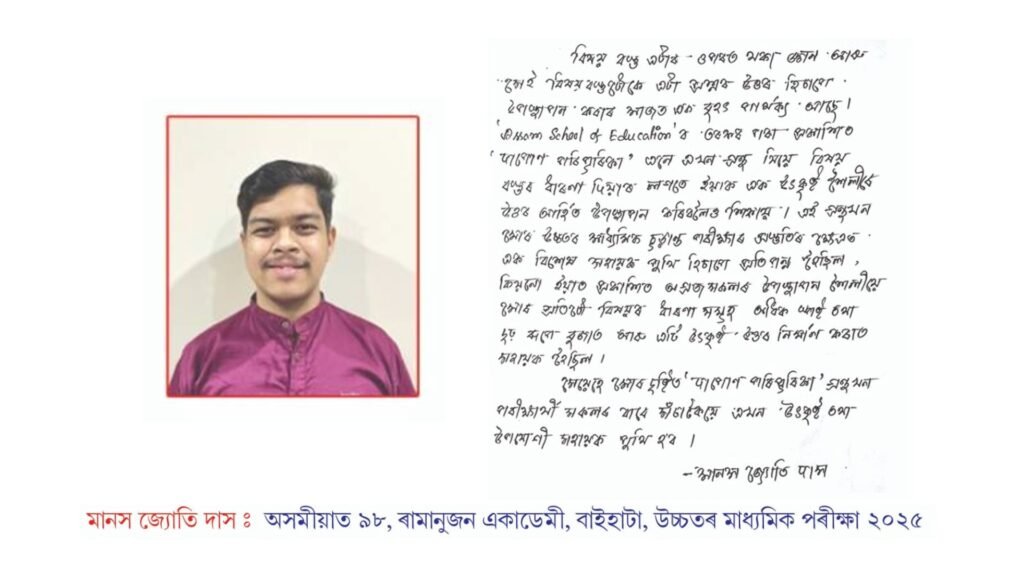 বিষয় বস্তু এটাৰ ওপৰত থকা জ্ঞান আৰু
সেই বিষয়বস্তুটোকে এটা প্ৰশ্নৰ উত্তৰ হিচাপে
উপস্থাপন কৰাৰ মাজত এক বৃহৎ পাৰ্থক্য আছে।
'Assam School of Education'ৰ তৰফৰ পৰা প্ৰকাশিত
'দাপোণ পৰিপূৰিকা' এনে এখন গ্ৰন্থ যিয়ে বিষয়
বস্তুৰ ধাৰণা দিয়াৰ লগতে ইয়াক এক উৎকৃষ্ট শৈলীৰে
উত্তৰ আৰ্হিত উপস্থাপন কৰিবলৈও শিকায়। এই গ্ৰন্থখন
মোৰ উচ্চতৰ মাধ্যমিক চূড়ান্ত পৰীক্ষাৰ প্ৰস্তুতিৰ ক্ষেত্ৰত
এক বিশেষ সহায়ক পুথি হিচাপে প্ৰতিপন্ন হৈছিল,
কিয়নো ইয়াত প্ৰকাশিত প্ৰশ্ন সকলৰ উপস্থাপন শৈলীয়ে
মোৰ প্ৰতিটো বিষয়ৰ ধাৰণা সমূহ অধিক স্পষ্ট তথা
দৃঢ় ৰূপে বুজাত আৰু এটি উৎকৃষ্ট উত্তৰ নিৰ্মাণ কৰাত
সহায়ক হৈছিল।
সেয়েহে মোৰ দৃষ্টিত 'দাপোণ পৰিপূৰিকা' গ্ৰন্থখন
পৰীক্ষাৰ্থী সকলৰ বাবে সঁচাকৈয়ে এখন উৎকৃষ্ট তথা
উপযোগী সহায়ক পুথি হব।
-মানস জ্যোতি দাস
মানস জ্যোতি দাস ঃ অসমীয়াত ৯৮, ৰামানুজন একাডেমী, বাইহাটা, উচ্চতৰ মাধ্যমিক পৰীক্ষা ২০২৫